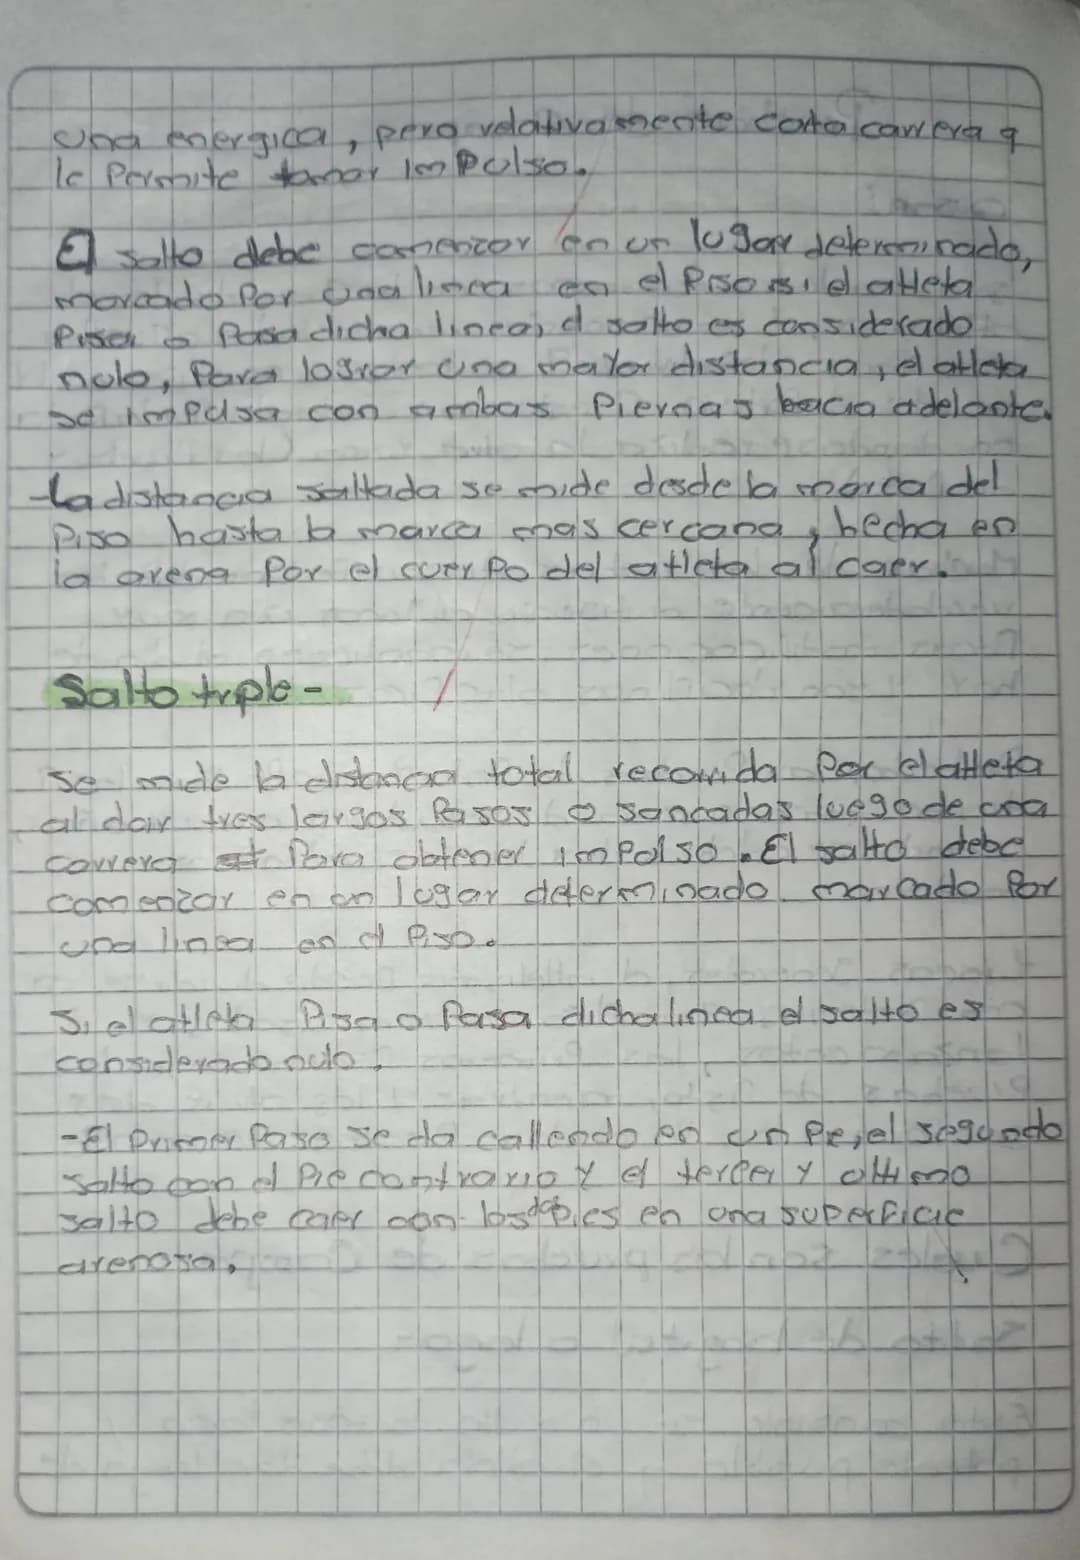 una energica, pero relativamente corta carrera q
le Permite tomar imPulso.
El salto debe comenzar en un lugar determinado,
marcado Por una linea en el Piso si el atleta
Pisa o Pasa dicha linea, el salto es considerado
nulo, Para lograr una mayor distancia, el atleta
se impulsa con ambas Piernas hacia adelante.
-La distancia saltada se mide desde la marca del
Piso hasta la marca mas cercana, hecha en
la arena Por el cuerpo del atleta al caer.
Salto triple-
Se mide la distancia total recorrida Por el atleta
al dar tres largos Pasos o sancadas luego de una
carrera Para obtener imPulso. El salto debe
comenzar en un lugar determinado marcado Por
una linea en el Piso.
Si el atleta Pisa o Pasa dicha linea el salto es
considerado nulo.
-El Primer Paso se da callendo en un Pie, el segundo
salto con el Pie contrario y el tercer y ultimo
salto debe caer con los dos pies en una superficie
arenosa.